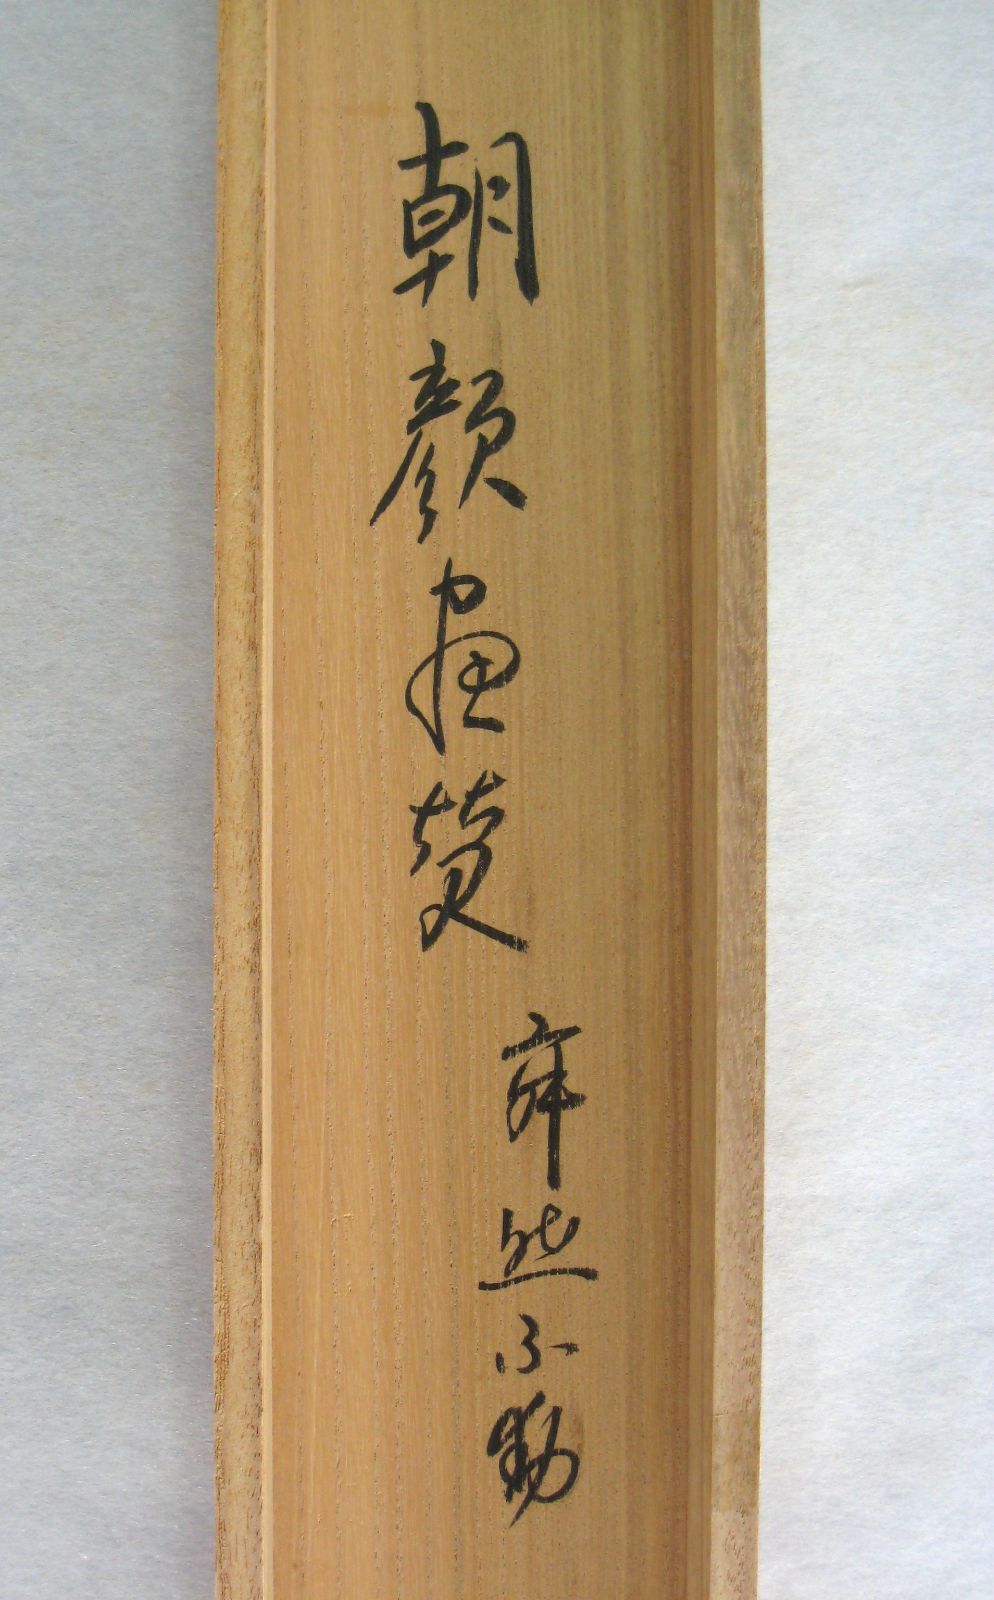 朝顔画賛
寂然不動